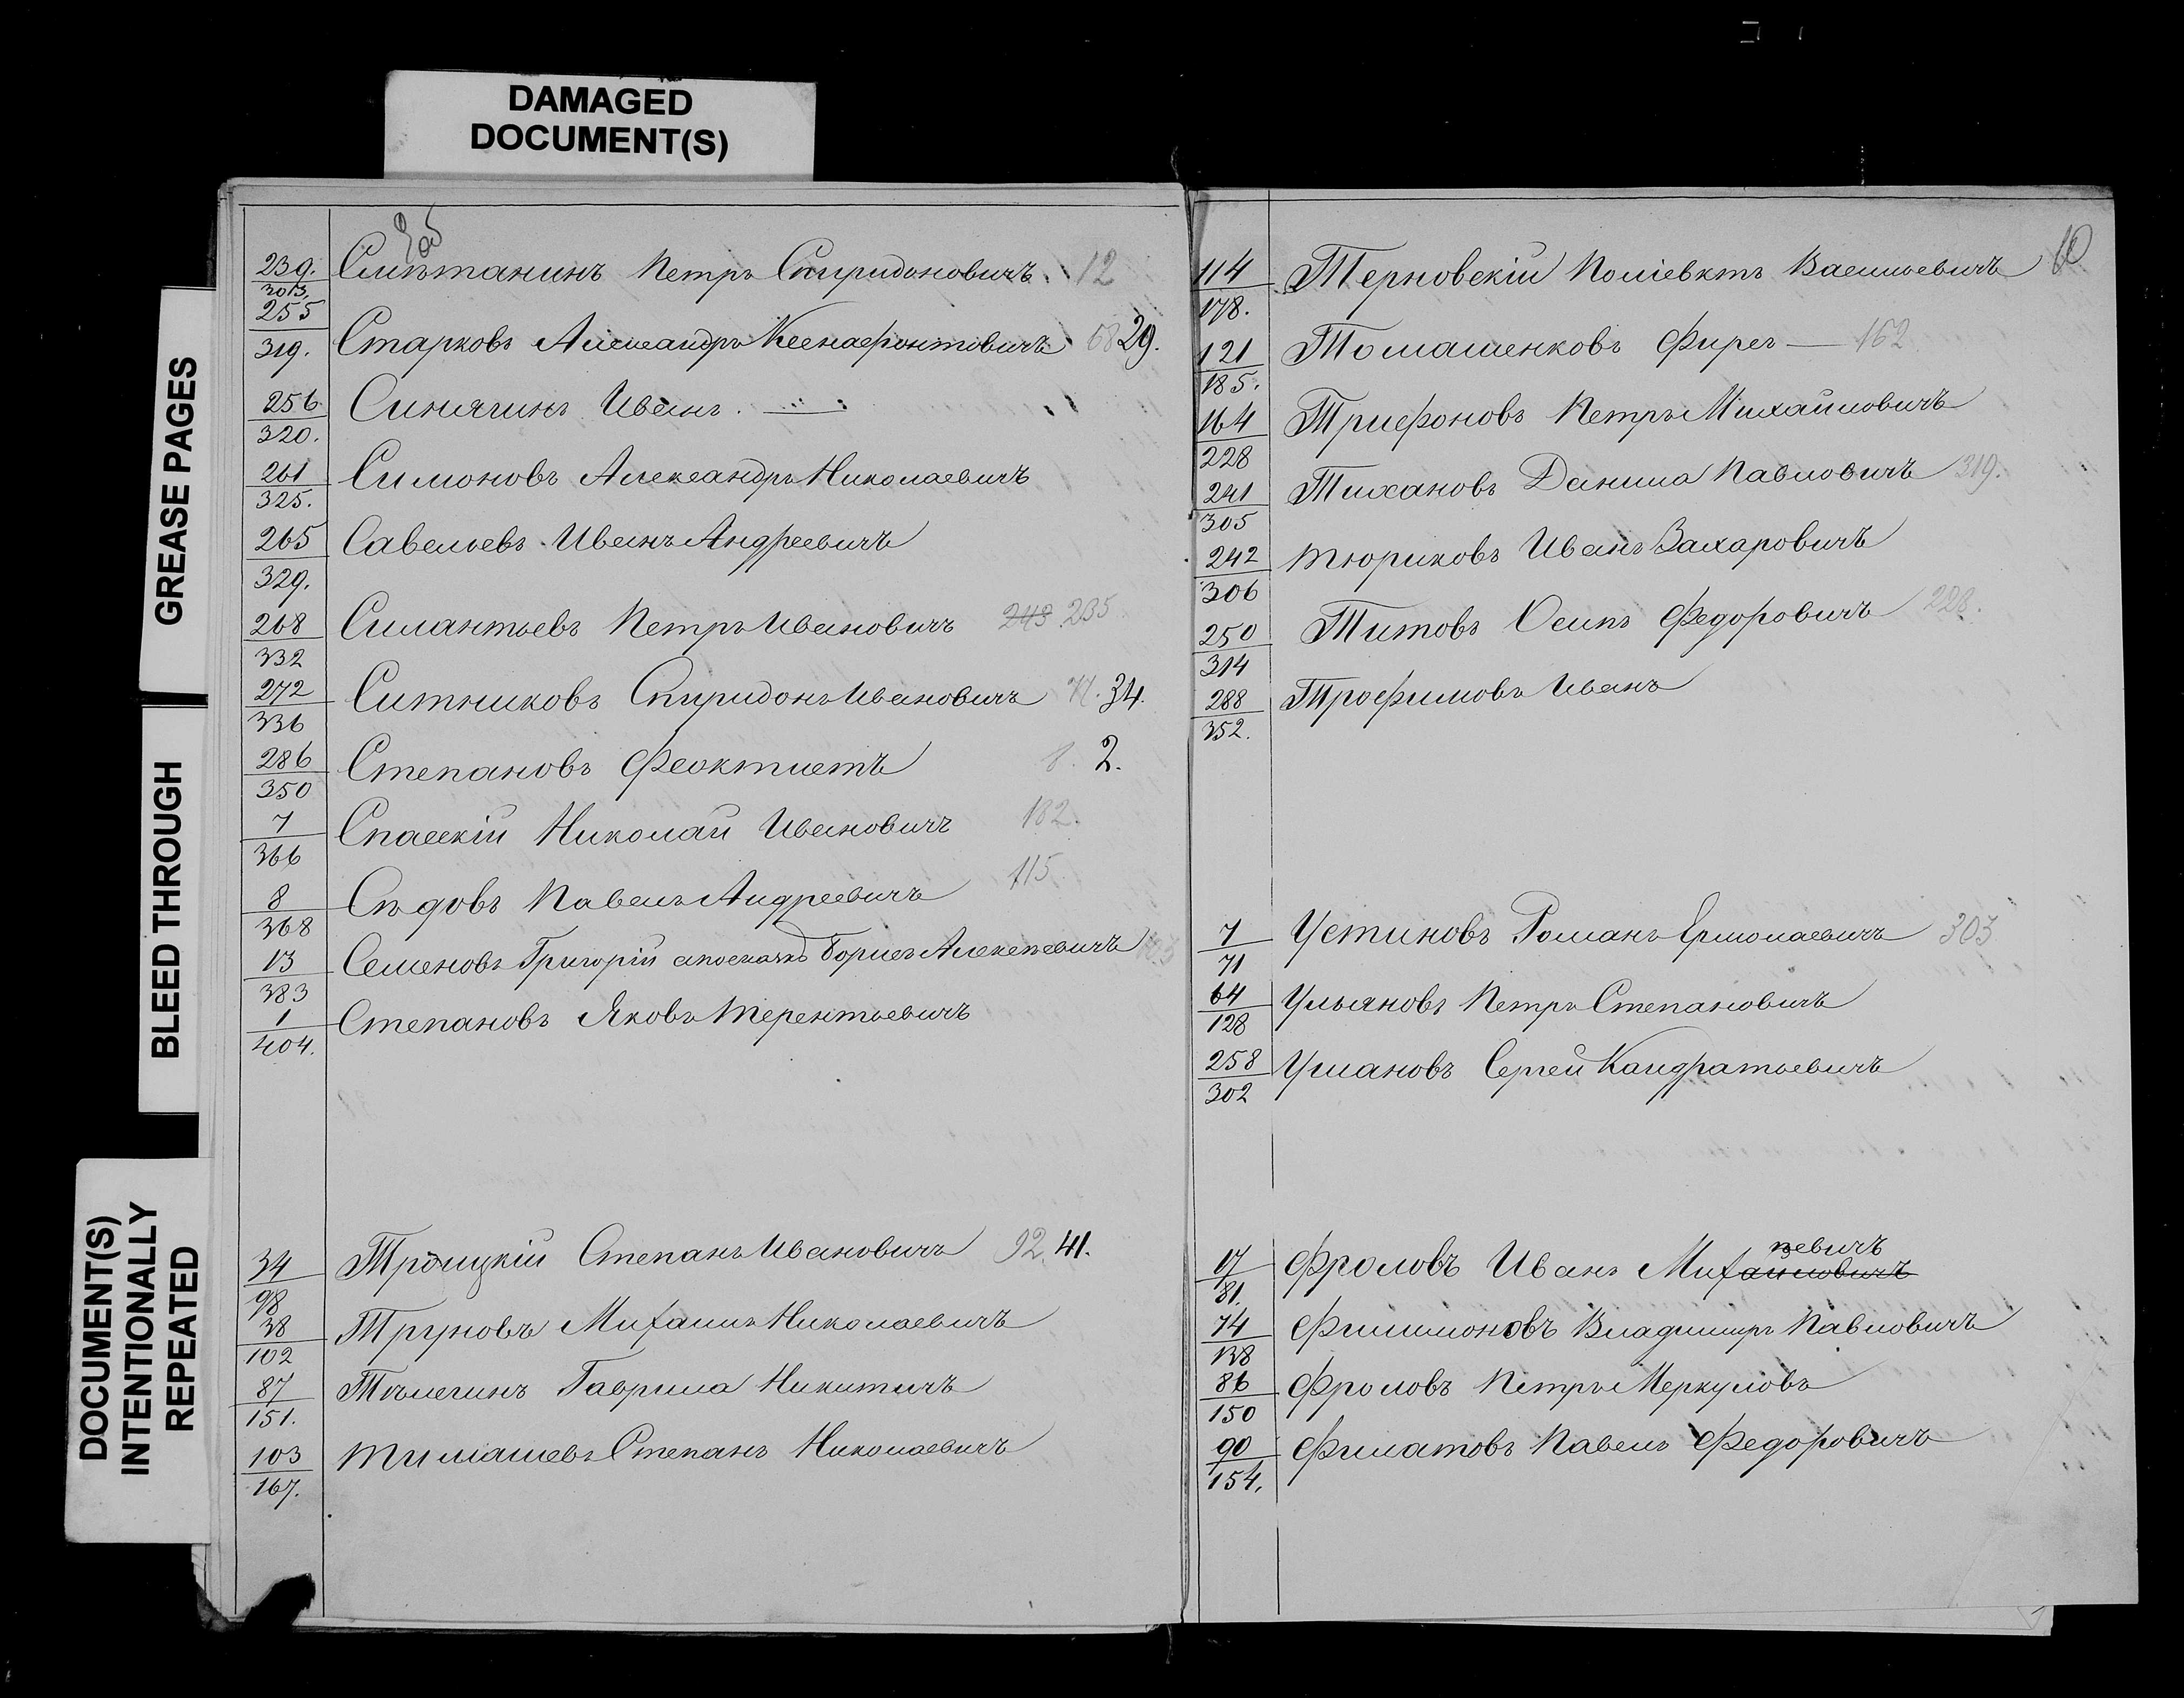 DAMAGED
DOCUMENT(S)
GREASE PAGES
BLEED THROUGH
DOCUMENT(S)
INTENTIONALLY
REPEATED
239. Смѣтанинъ Петръ Спиридоновичъ. 12
303.
255 Старковъ Александръ Ксенафонтовичъ 29.
319.
256 Синягинъ Иванъ. —
320.
261 Симоновъ Александръ Николаевичъ
325.
265 Савельевъ Иванъ Андреевичъ
329.
268 Силантьевъ Петръ Ивановичъ 243 235
332
272 Ситниковъ Спиридонъ Ивановичъ 34.
336
286 Степановъ Феоктистъ 8. 2.
350
7 Спасскій Николай Ивановичъ 182.
366
8 Сѣдовъ Павелъ Андреевичъ 115.
368
13 Семеновъ Григорій Борисъ Алексѣевичъ
383
1 Степановъ Яковъ Терентьевичъ
404.
34 Троицкій Степанъ Ивановичъ 92. 41.
98
38 Труновъ Михаилъ Николаевичъ
102
87 Тѣлегинъ Гаврила Никитичъ
151.
103 Тимашевъ Степанъ Николаевичъ
167.
10
114 Терновскій Поліевктъ Васильевичъ
178.
121 Томашенковъ Фирсъ — 162
185.
164 Трифоновъ Петръ Михайловичъ
228
241 Тихановъ Данила Павловичъ 319.
305
242 Тюриковъ Иванъ Захаровичъ
306
250 Титовъ Осипъ Федоровичъ 228.
314
288 Трофимовъ Иванъ
352.
7 Устиновъ Романъ Ермолаевичъ 303
71
64 Ульяновъ Петръ Степановичъ
128
258 Умановъ Сергей Кандратьевичъ
302
ѣевичъ
17 Фроловъ Иванъ Михайловичъ
81.
74 Филимоновъ Владимиръ Павловичъ
138
86 Фроловъ Петръ Меркуловъ
150
90 Филатовъ Павелъ Федоровичъ
154.